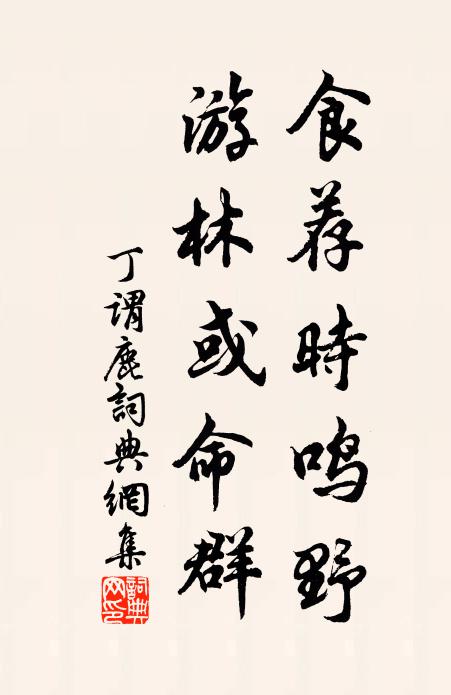 食荐時鸣野
游林或命群
丁谓鹿詞典網集
詞典网印